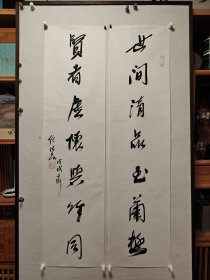 世间清品至兰极
贤者虚怀与竹同
戊戌